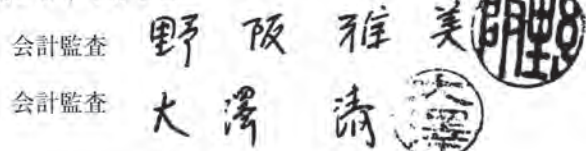 会計監査 野阪雅美
会計監査 大澤清